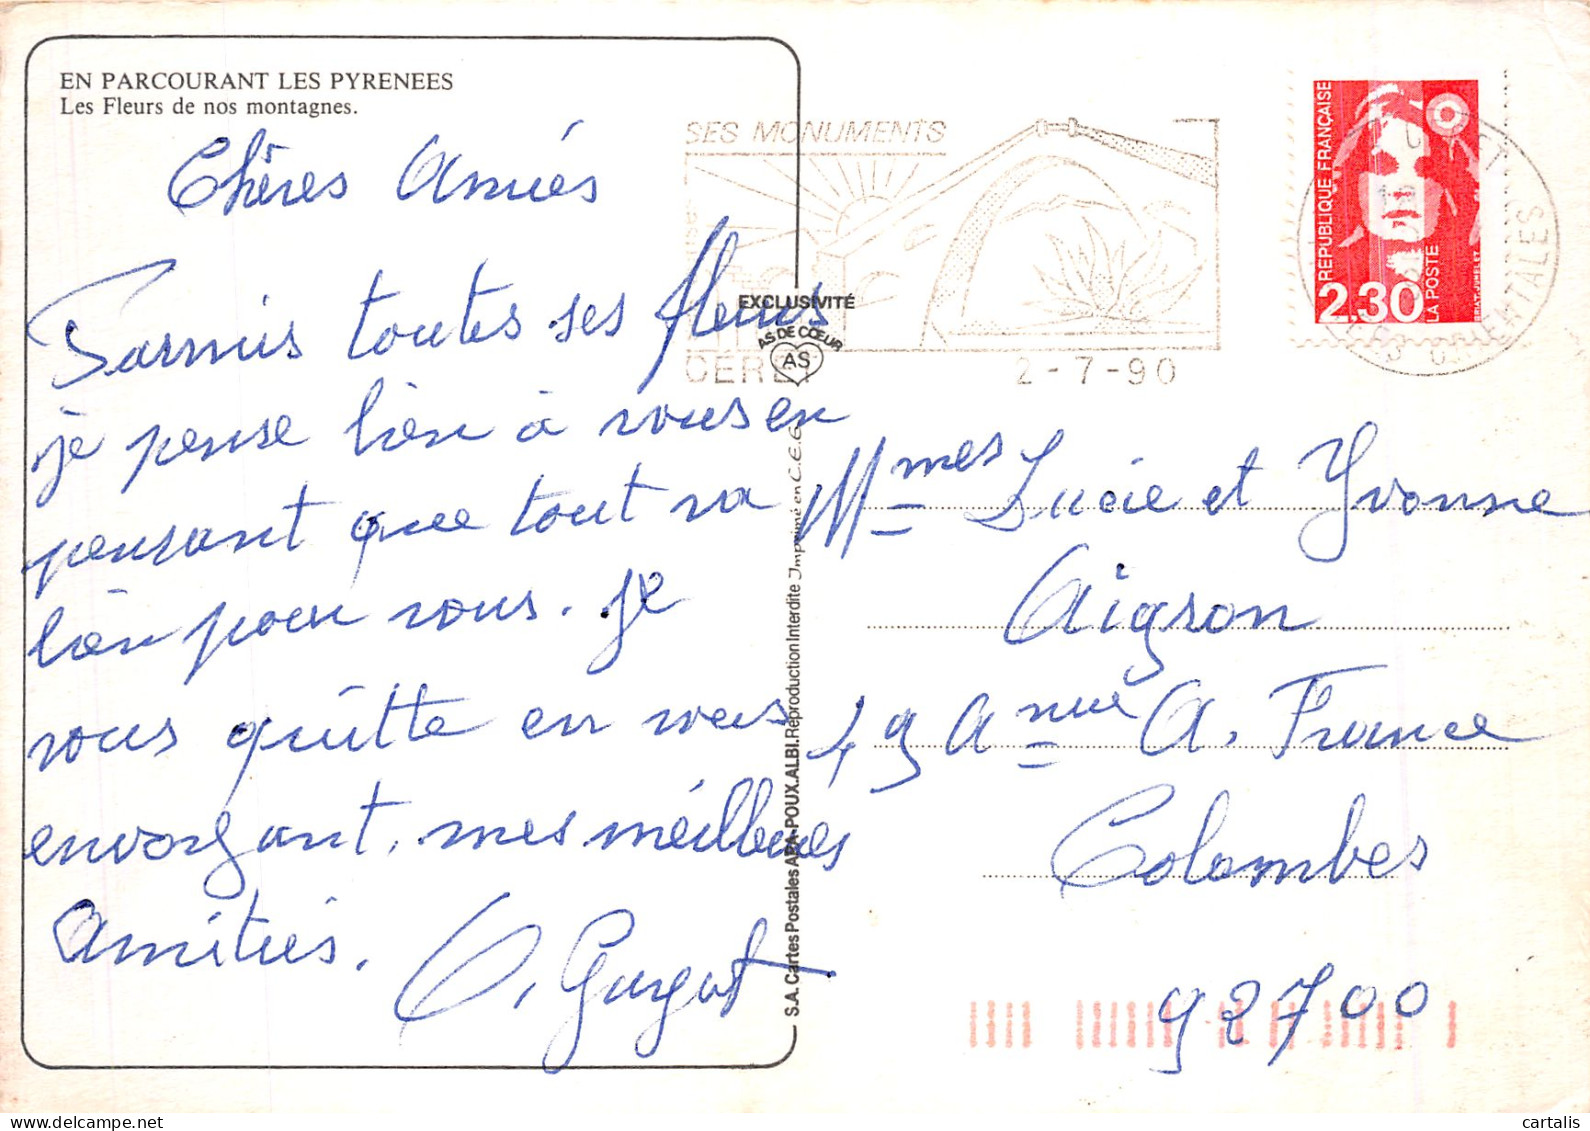 EN PARCOURANT LES PYRENEES
Les Fleurs de nos montagnes.
Chères Amiés
Parmis toutes ses fleurs
je pense bien à vous en
pensant que tout va
bien pour vous. Je
vous quitte en vous
envoyant, mes meilleures
Amitiés.
SES MONUMENTS
CERET
2-7-90
EXCLUSIVITÉ
AS DE CŒUR
AS
S.A. Cartes Postales APA-POUX. ALBI. Reproduction Interdite Imprimé en C.E.E.
REPUBLIQUE FRANÇAISE
LA POSTE
2,30
ORIENTALES
Mmes Lucie et Yvonne
Aigron
49 Anue A. France
Colombes
92700
cartalis.com